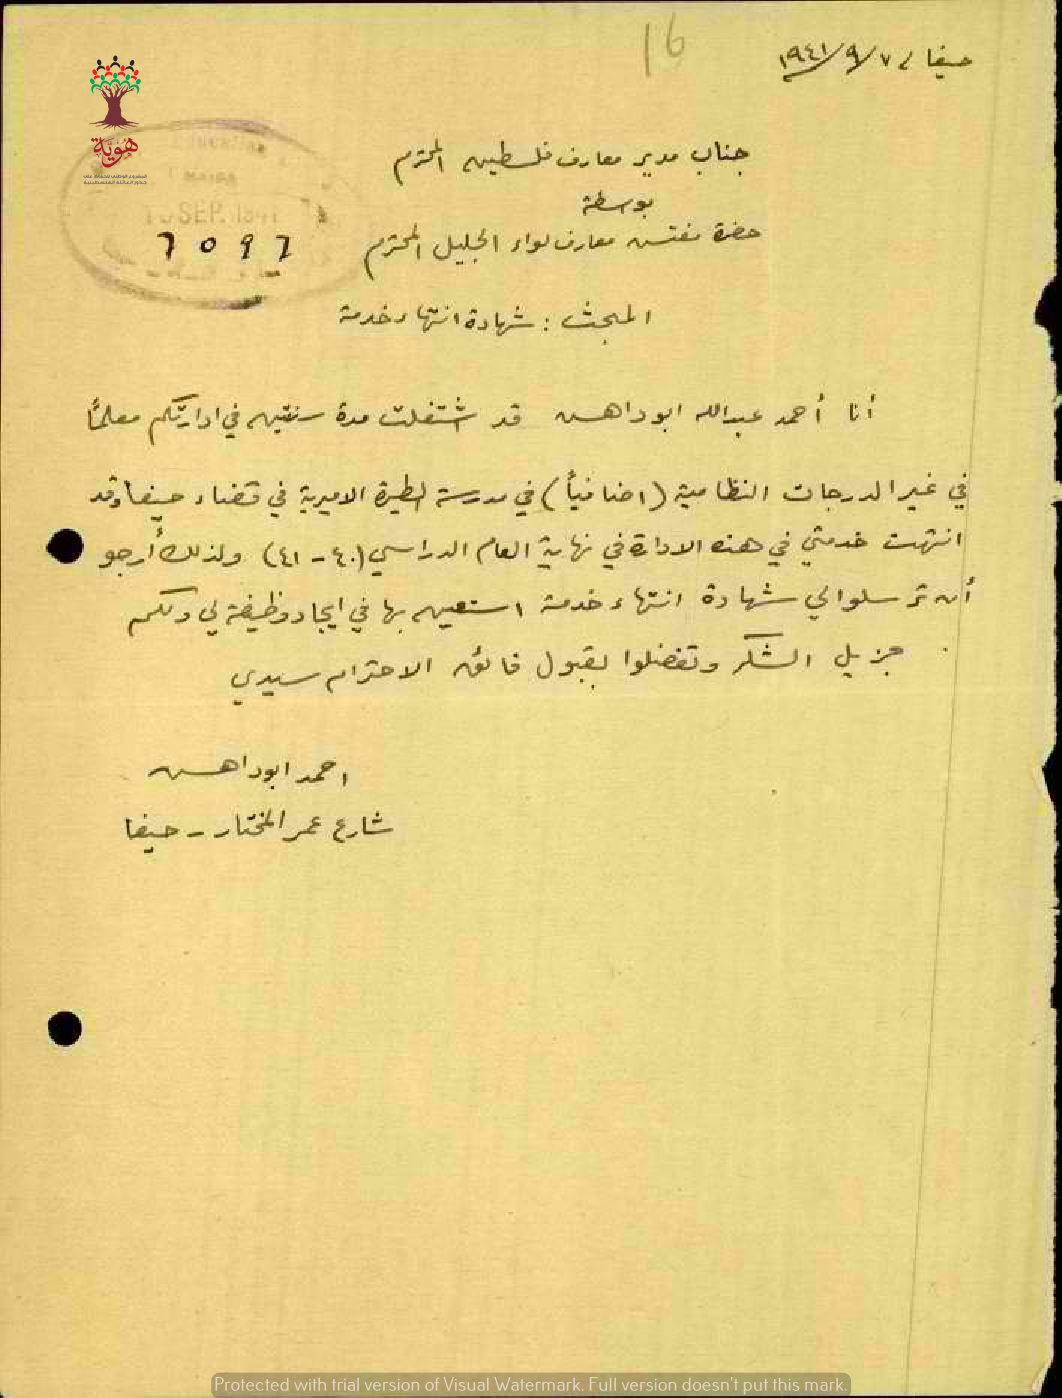 16
حيفا ٧/٩/١٩٤١
جناب مدير معارف فلسطين المحترم
بوسطة
حضرة مفتش معارف لواء الجليل المحترم
هوية
SEP. 1941
7097
المبحث : شهادة انتهاء خدمة
أنا أحمد عبدالله ابوداهس قد اشتغلت مدة سنتين في ادارتكم معلمًا
في غير الدرجات النظامية (اضافيًا) في مدرسة الطيرة الاميرية في قضاء حيفا وقد
انتهت خدمتي في هذه الادارة في نهاية العام الدراسي (٤٠ - ٤١) ولذلك أرجو
أن ترسلوا لي شهادة انتهاء خدمة استعين بها في ايجاد وظيفة لي ولكم
جزيل الشكر وتفضلوا بقبول فائق الاحترام سيدي
احمد ابوداهس
شارع عمر المختار - حيفا
Protected with trial version of Visual Watermark. Full version doesn't put this mark.